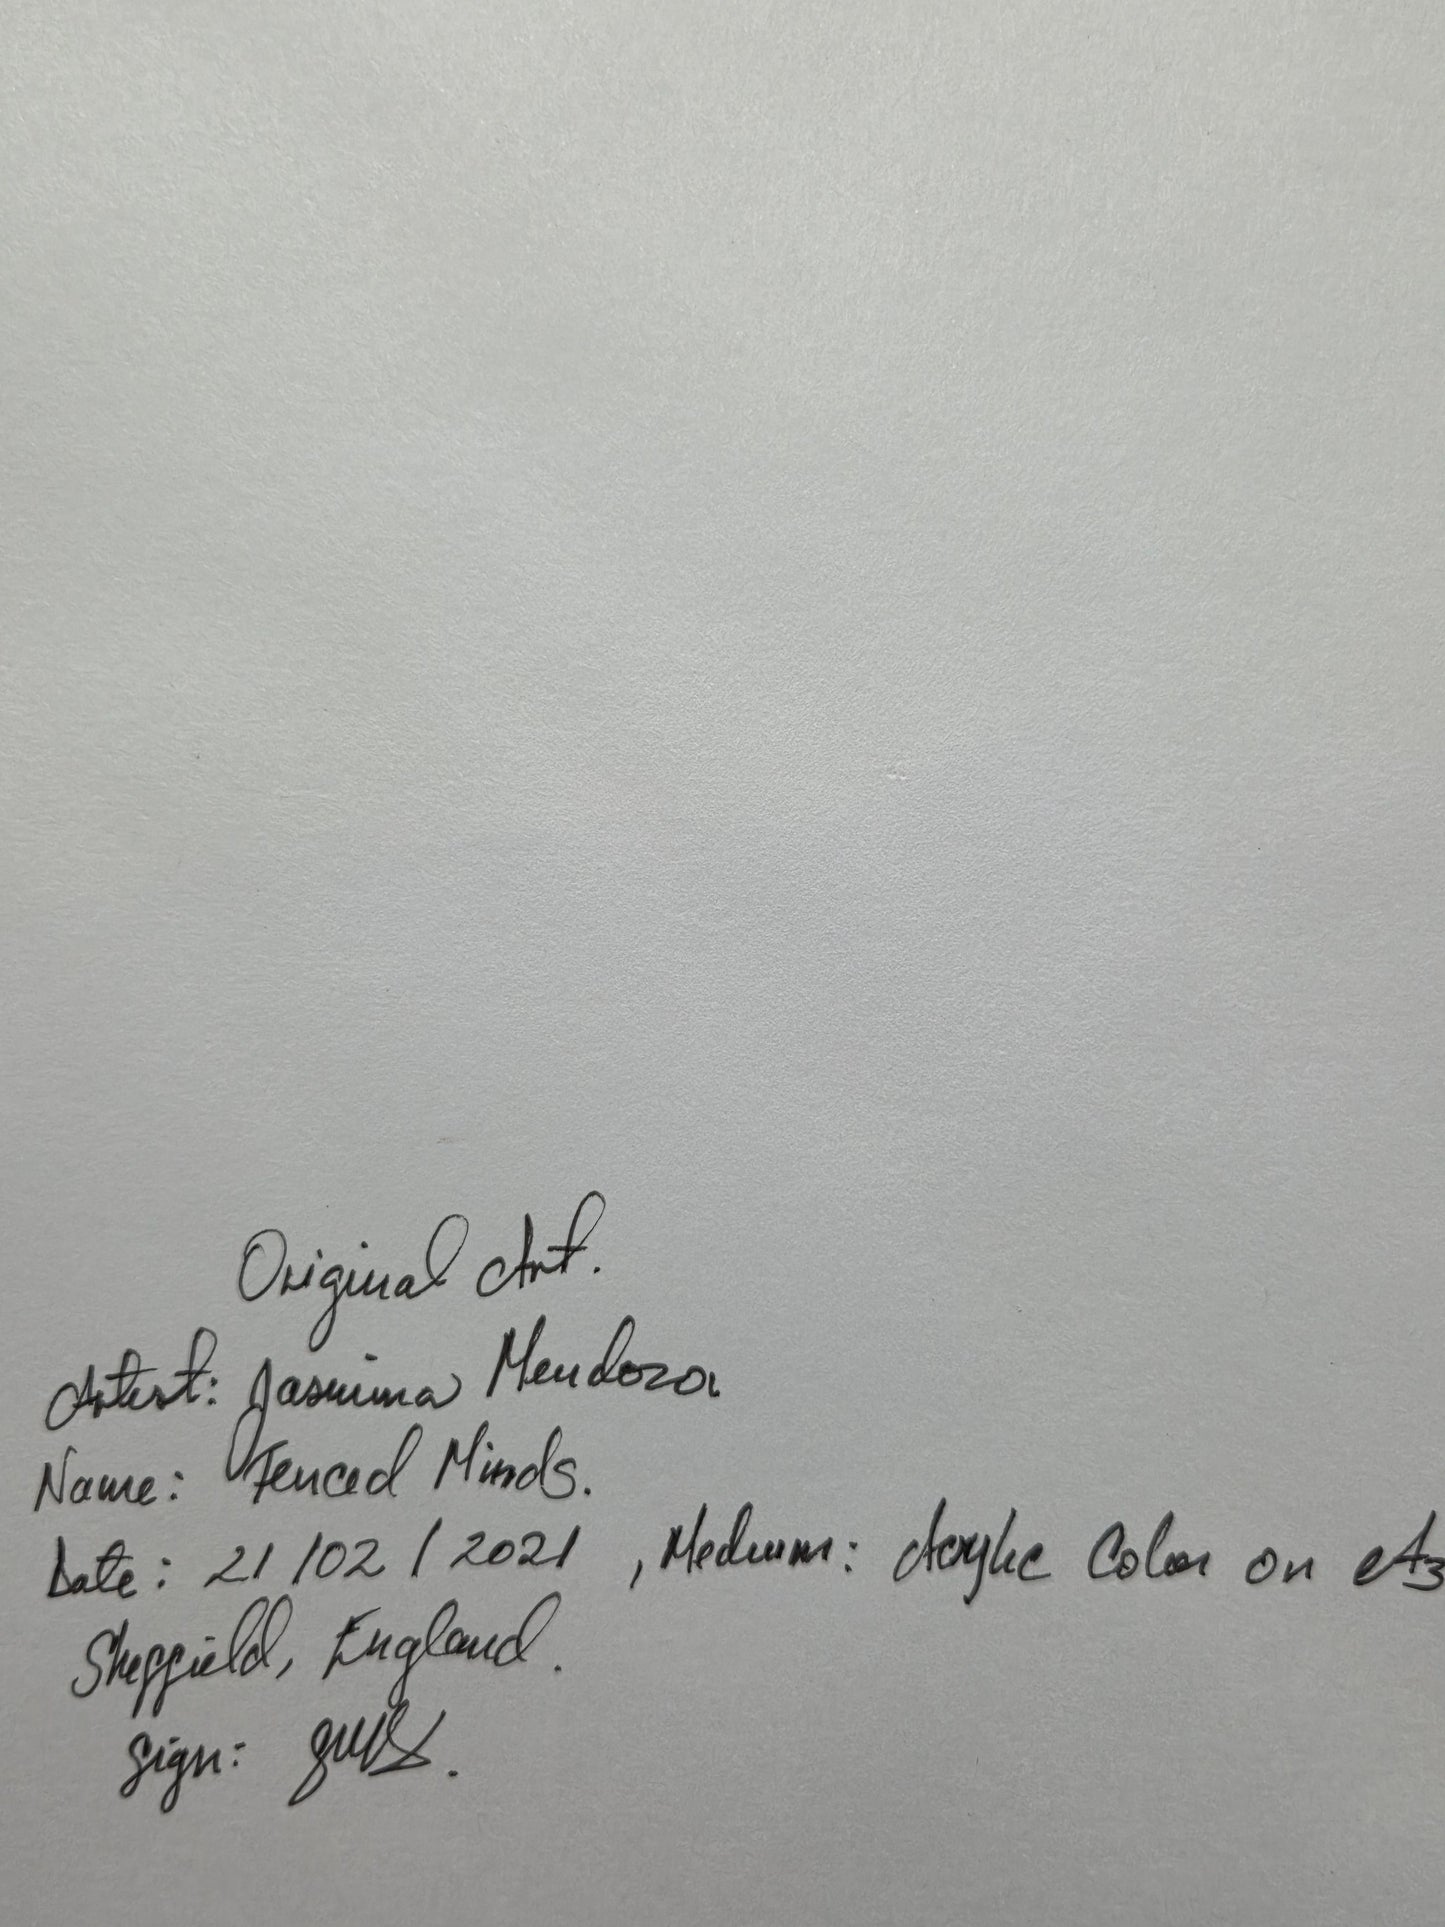 Original Art.
Artist: Jasmina Mendoza
Name: Fenced Minds.
Date: 21/02/2021, Medium: Acrylic Color on A3
Sheffield, England.
Sign: